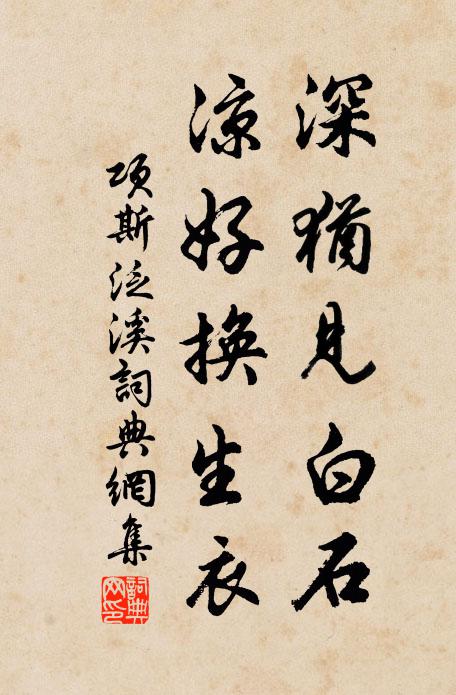 深猶見白石
涼好換生衣
項斯泛溪詞典網集
詞典網印